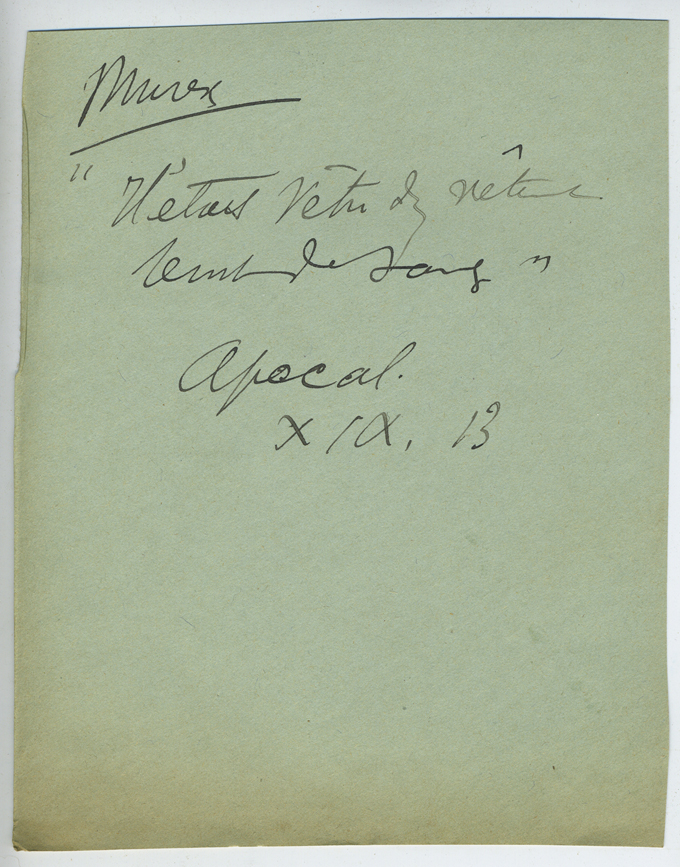 Murex
" Il était vêtu d'un vête
ment de sang "
Apocal.
XIX. 13